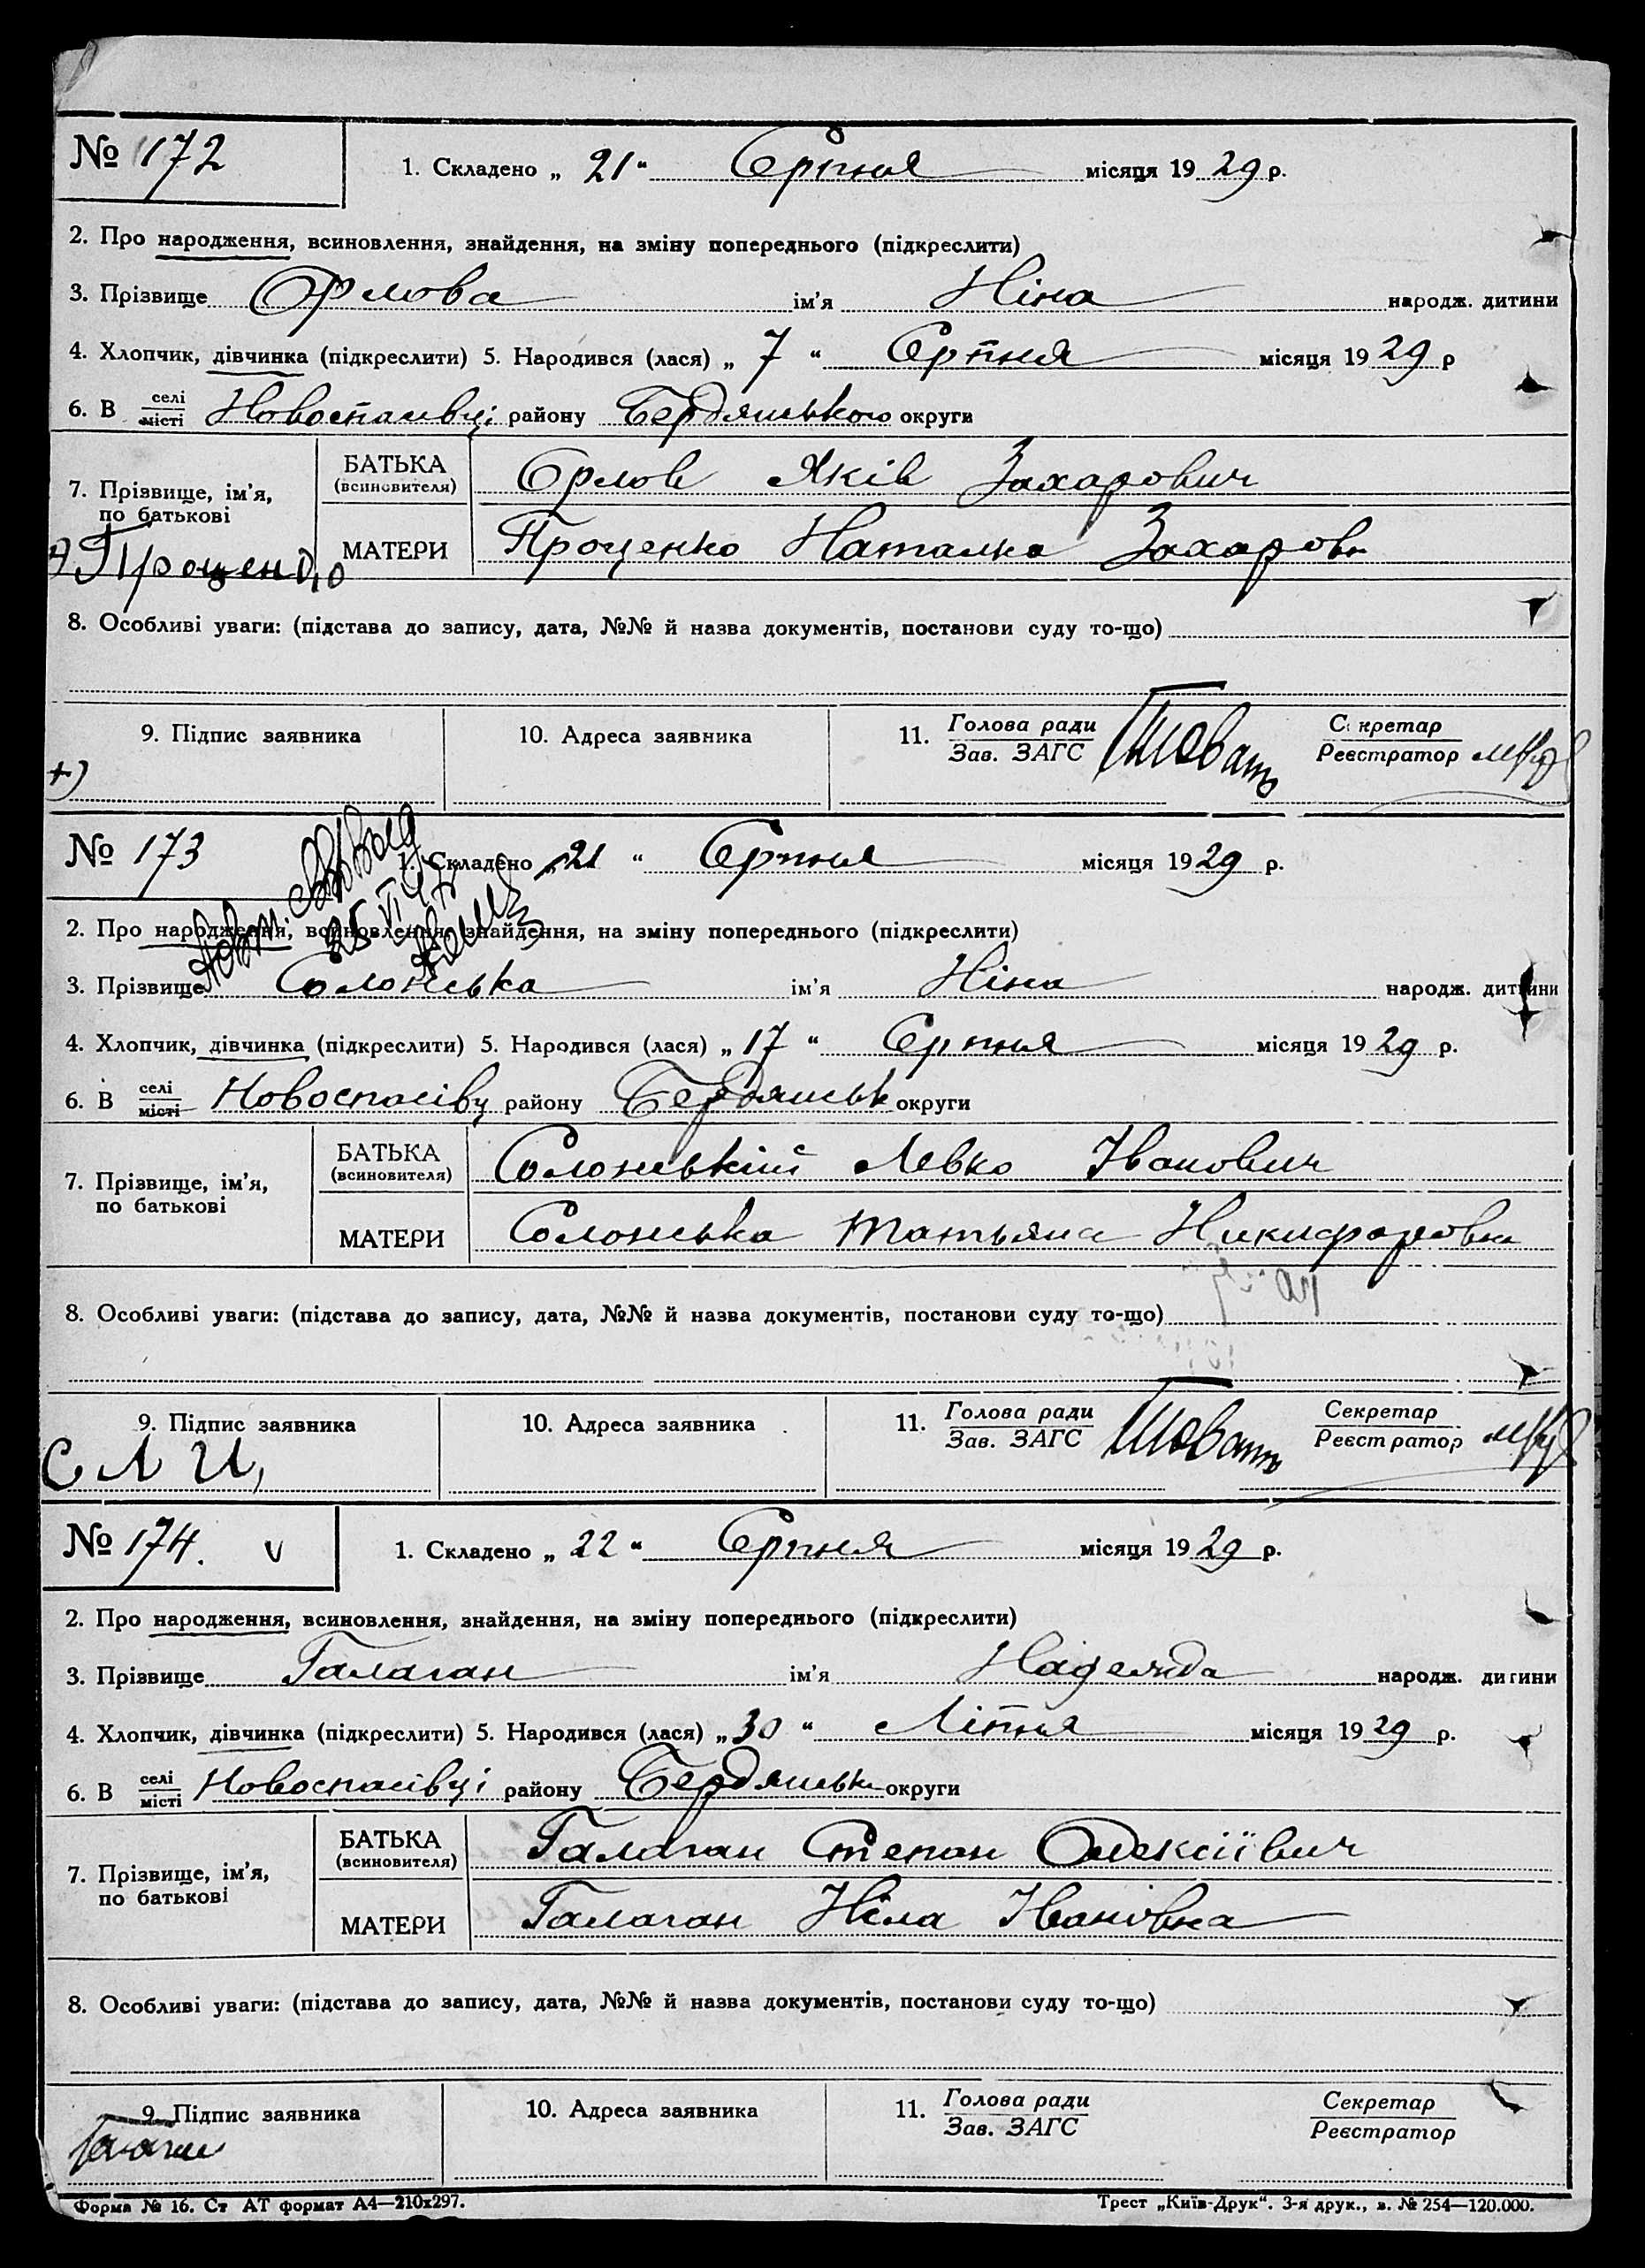 № 172
1. Складено „ 21 “ Серпня місяця 1929 р.
2. Про народження, всиновлення, знайдення, на зміну попереднього (підкреслити)
3. Прізвище Орлова ім’я Ніна народж. дитини
4. Хлопчик, дівчинка (підкреслити) 5. Народився (лася) „ 7 “ Серпня місяця 1929 р
6. В селі місті Новоспасівці району Бердянського округи
7. Прізвище, ім’я, по батькові
БАТЬКА (всиновителя) Орлов Яків Захарович
МАТЕРИ Проценко Наталка Захаровн
8. Особливі уваги: (підстава до запису, дата, №№ й назва документів, постанови суду то-що)
9. Підпис заявника
+)
10. Адреса заявника
11. Голова ради Зав. ЗАГС
Секретар Реєстратор
№ 173
1. Складено „ 21 “ Серпня місяця 1929 р.
2. Про народження, всиновлення, знайдення, на зміну попереднього (підкреслити)
3. Прізвище Солонська ім’я Ніна народж. дитини
4. Хлопчик, дівчинка (підкреслити) 5. Народився (лася) „ 17 “ Серпня місяця 1929 р.
6. В селі місті Новоспасівц району Бердянськ округи
7. Прізвище, ім’я, по батькові
БАТЬКА (всиновителя) Солонський Левко Іванович
МАТЕРИ Солонська Татьяна Никифоровна
8. Особливі уваги: (підстава до запису, дата, №№ й назва документів, постанови суду то-що)
9. Підпис заявника
С Л И,
10. Адреса заявника
11. Голова ради Зав. ЗАГС
Секретар Реєстратор
№ 174. v
1. Складено „ 22 “ Серпня місяця 1929 р.
2. Про народження, всиновлення, знайдення, на зміну попереднього (підкреслити)
3. Прізвище Галаган ім’я Надежда народж. дитини
4. Хлопчик, дівчинка (підкреслити) 5. Народився (лася) „ 30 “ Літня місяця 1929 р.
6. В селі місті Новоспасівці району Бердянськ округи
7. Прізвище, ім’я, по батькові
БАТЬКА (всиновителя) Галаган Степан Олексіївич
МАТЕРИ Галаган Ніла Івановна
8. Особливі уваги: (підстава до запису, дата, №№ й назва документів, постанови суду то-що)
9. Підпис заявника
10. Адреса заявника
11. Голова ради Зав. ЗАГС
Секретар Реєстратор
Форма № 16. Ст АТ формат А4—210х297.
Трест „Київ-Друк“. 3-я друк., з. № 254—120.000.